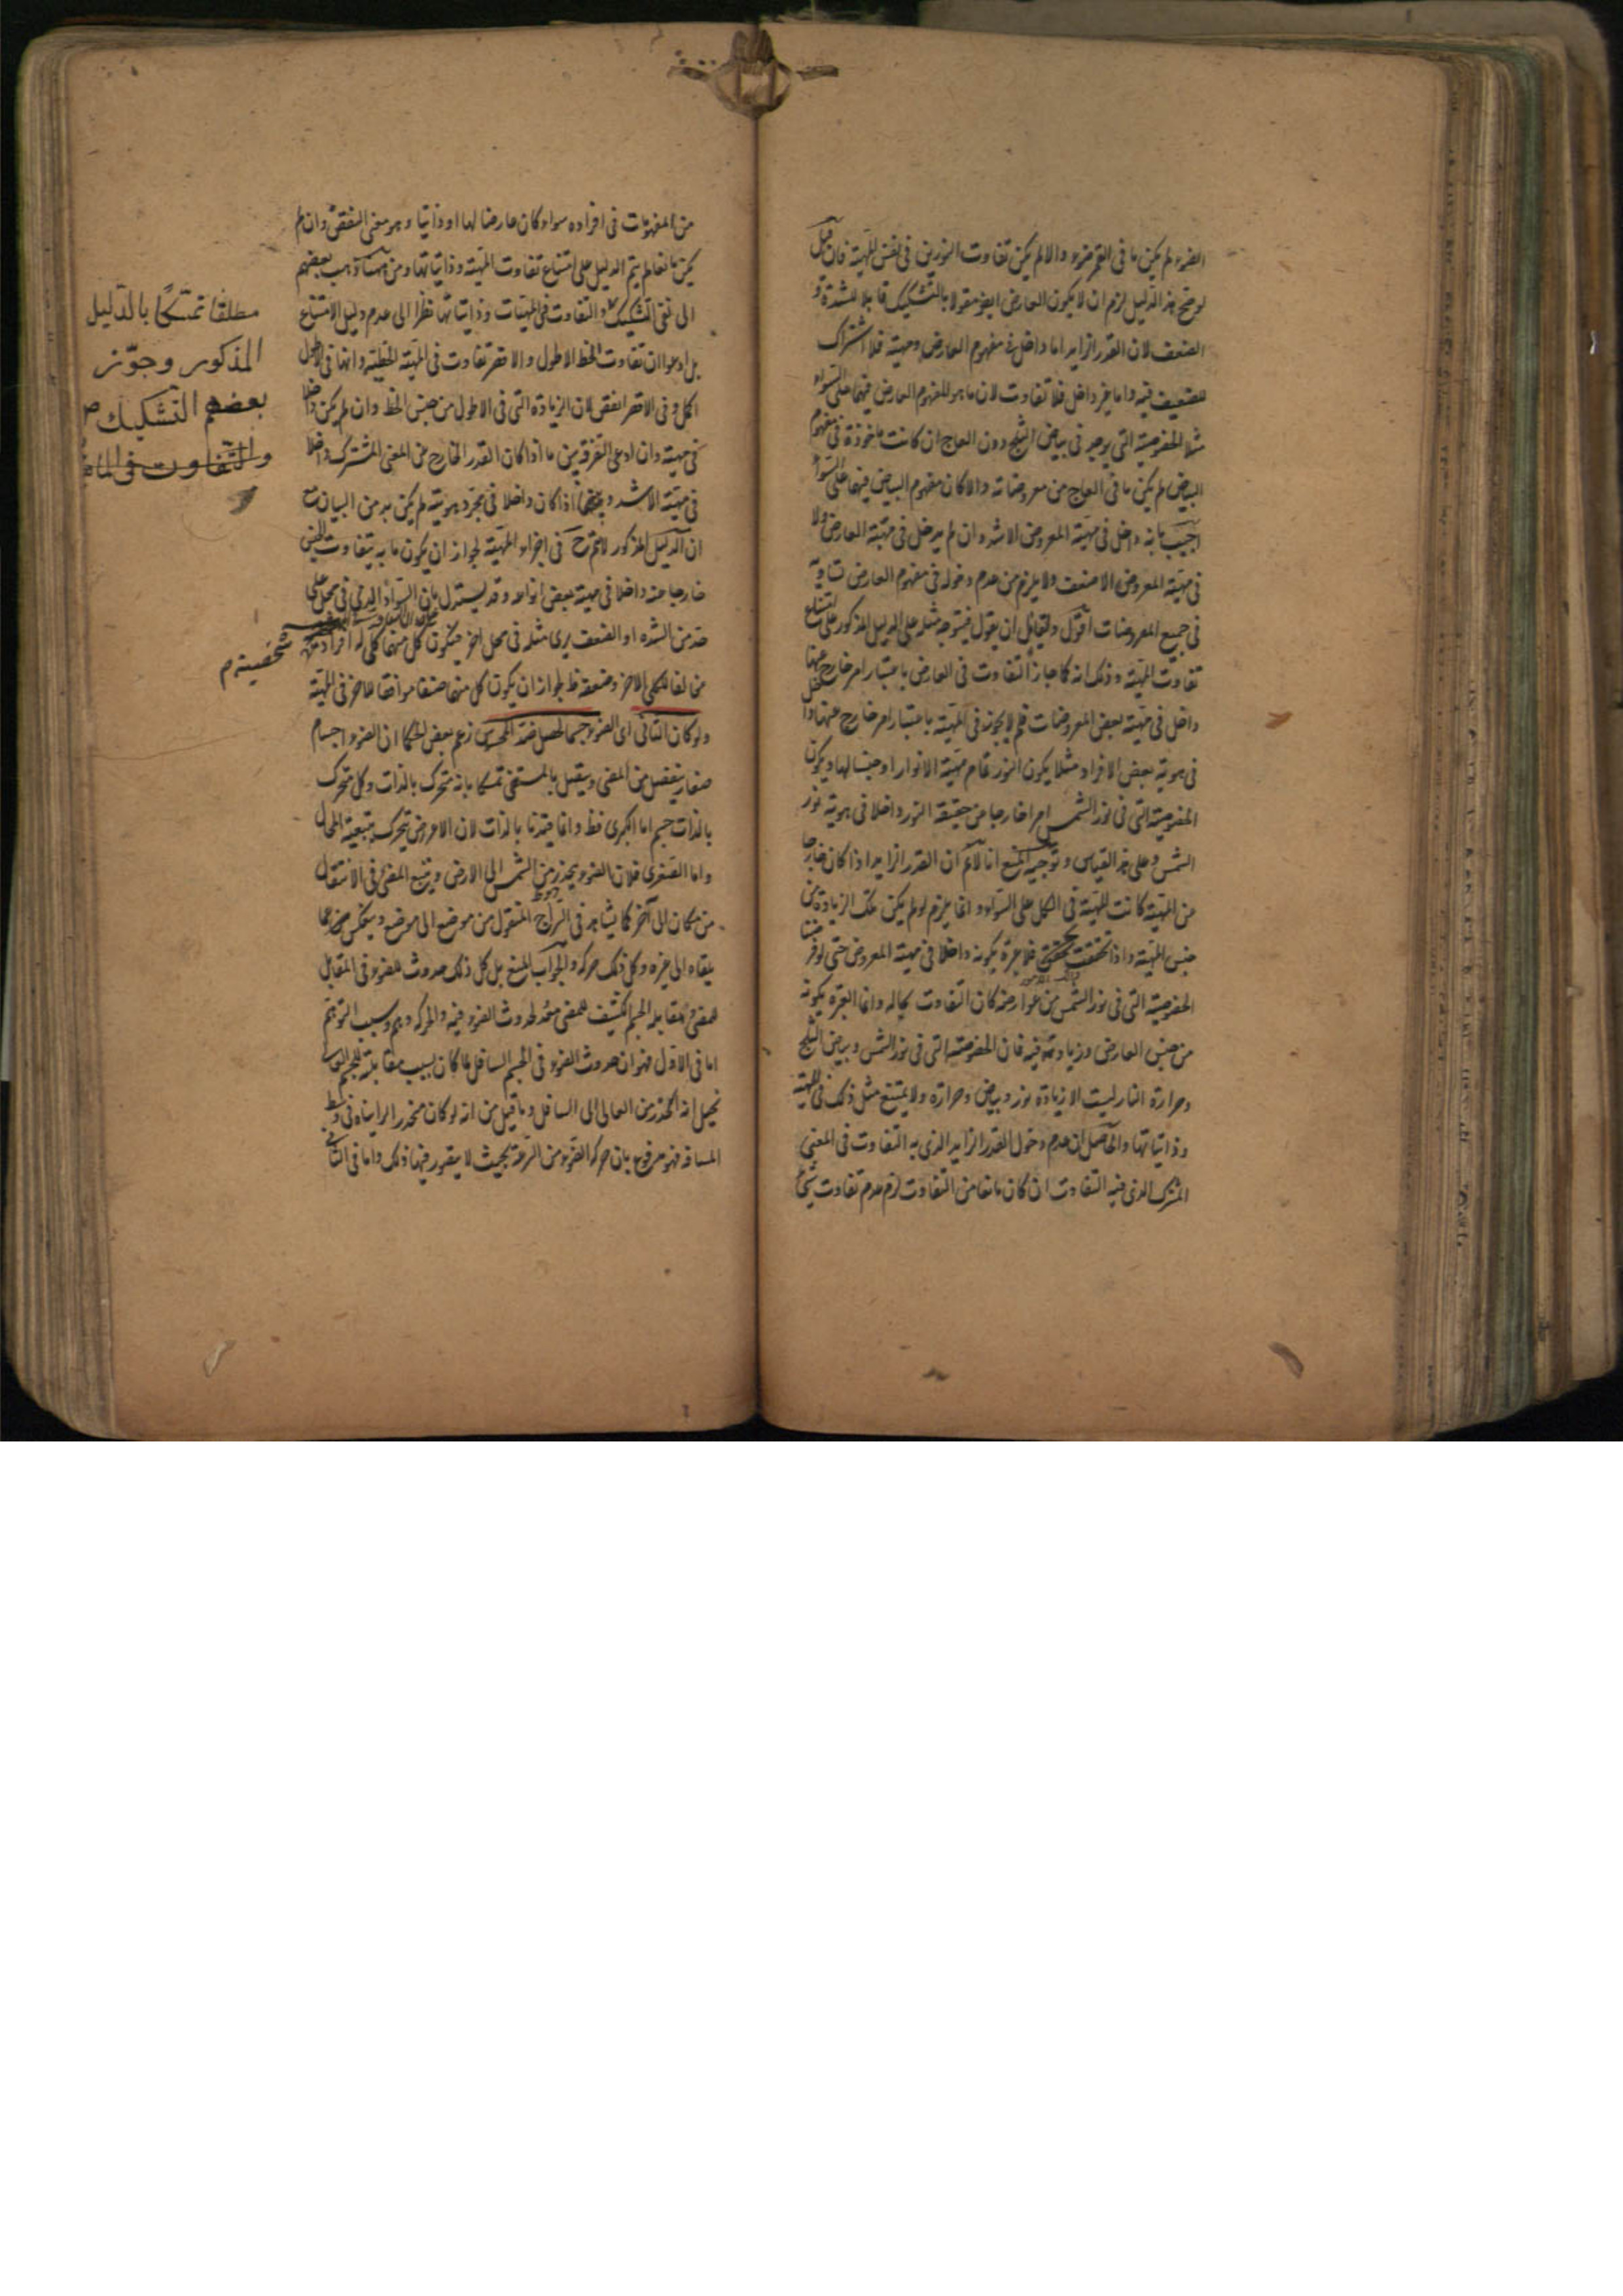 الضوء لم يكن ما فى القمر ضوء والا لم يكن تفاوت النورين فى نفس المهية فان قيل
لو صح هذا الدليل لزم ان لا يكون العارض ايض مقولا بالتشكيك قابلا للشدة و
الضعف لان القدر الزايد اما داخل فى مفهوم العارض ومهيته فلا اشتراك
للضعيف فيه واما غير داخل فلا تفاوت لان ما هو المفهوم العارض فيهما على السواء
مثلا الخصوصية التى توجد فى بياض الثلج دون العاج ان كانت ماخوذة فى مفهوم
البياض لم يكن ما فى العاج من معروضاته والا كان مفهوم البياض فيهما على السواء
اجيب بانه داخل فى مهية المعروض الاشد وان لم يدخل فى مهية العارض ولا
فى مهية المعروض الاضعف ولا يلزم من عدم دخوله فى مفهوم العارض تساويه
فى جميع المعروضات اقول ولقائل ان يقول فيتوجه مثله على الدليل المذكور على امتناع
تفاوت المهية وذلك انه كما جاز التفاوت فى العارض باعتبار امر خارج عنها
داخل فى مهية بعض المعروضات فلم لا يجوز فى المهية باعتبار امر خارج عنها داخل
فى هوية بعض الافراد مثلا يكون النور تمام مهية الانوار او جنسا لها ويكون
الخصوصية التى فى نور الشمس امرا خارجا من حقيقة النور داخلا فى هوية نور
الشمس وعلى هذا القياس وتوجيه المنع انا لا نم ان القدر الزايد اذا كان خارجا
من المهية كانت المهية فى الكل على السواء وانما يلزم لو لم يكن تلك الزيادة من
جنس المهية واذا تحققت فلا عبرة بكونه داخلا فى مهية المعروض حتى لو فرضنا
الخصوصية التى فى نور الشمس من عوارضه كان التفاوت بحاله وانما العبرة بكونه
من جنس العارض وزيادته فيه فان الخصوصية التى فى نور الشمس وبياض الثلج
وحرارة النار ليست الا زيادة نور وبياض وحرارة ولا يمتنع مثل ذلك فى المهية
وذاتياتها والحاصل ان عدم دخول القدر الزايد الذى به التفاوت فى المعنى
المشترك الذى فيه التفاوت ان كان مانعا من التفاوت لزم عدم تفاوت شئ
من المفهومات فى افراده سواء كان عارضا لها او ذاتيا وهو معنى النقض وان لم
يكن مانعا لم يتم الدليل على امتناع تفاوت المهية وذاتياتها ومن هنا ذهب بعضهم
الى نفى التشكيك والتفاوت فى المهيات وذاتياتها نظرا الى عدم دليل الامتناع
بل ادعوا ان تفاوت الخط الاطول والاقصر تفاوت فى المهية الخطية وانها فى الاطول
اكمل وفى الاقصر انقص لان الزيادة التى فى الاطول من جنس الخط وان لم يكن داخلا
فى مهيته وان ادعى التفرقة بين ما اذا كان القدر الخارج من المعنى المشترك داخلا
فى مهية الاشد وبين ما اذا كان داخلا فى مجرد هويته لم يكن بد من البيان مع
ان الدليل المذكور لا يتم ح فى اجزاء المهية لجواز ان يكون ما به يتفاوت الجنس
خارجا عنه داخلا فى مهية بعض انواعه وقد يستدل بان السواد الذى فى محل على
حد من الشدة او الضعف يرى مثله فى محل اخر فيكون كل منهما كلى له افراد
شخصية م
مخالفا للكلى الاخر وضعفه ظ لجواز ان يكون كل منهما صنفا موافقا للاخر فى المهية
ولو كان الثانى اى الضوء جسما لحصل ضد المحسوس زعم بعض الحكما ان الضوء اجسام
صغار ينفصل من المضى ويتصل بالمستضى تمسكا بانه متحرك بالذات وكل متحرك
بالذات جسم اما الكبرى فظ وانما قيدنا بالذات لان الاعراض تتحرك بتبعية المحال
واما الصغرى فلان الضوء ينحدر من الشمس الى الارض ويتبع المضى فى الانتقال
من مكان الى آخر كما يشاهد فى السراج المنقول من موضع الى موضع وينعكس مما
يلقاه الى غيره وكل ذلك حركه والجواب المنع بل كل ذلك حدوث للضوء فى المقابل
للمضى ومقابلة الجسم الكثيف للمضى معد لحدوث الضوء فيه والحركه وهم وسبب التوهم
اما فى الاول فهو ان حدوث الضوء فى الجسم السافل لما كان بسبب مقابلة الجسم العالى
تخيل انه انحدر من العالى الى السافل وما قيل من انه لو كان منحدرا لرايناه فى وسط
المسافة فهو مرفوع بان حركة الضوء من السرعة بحيث لا يتصور فيها ذلك واما فى الثانى
مطلقا تمسكا بالدليل
المذكور وجوّز
بعضهم التشكيك ص
والتفاوت فى الماه